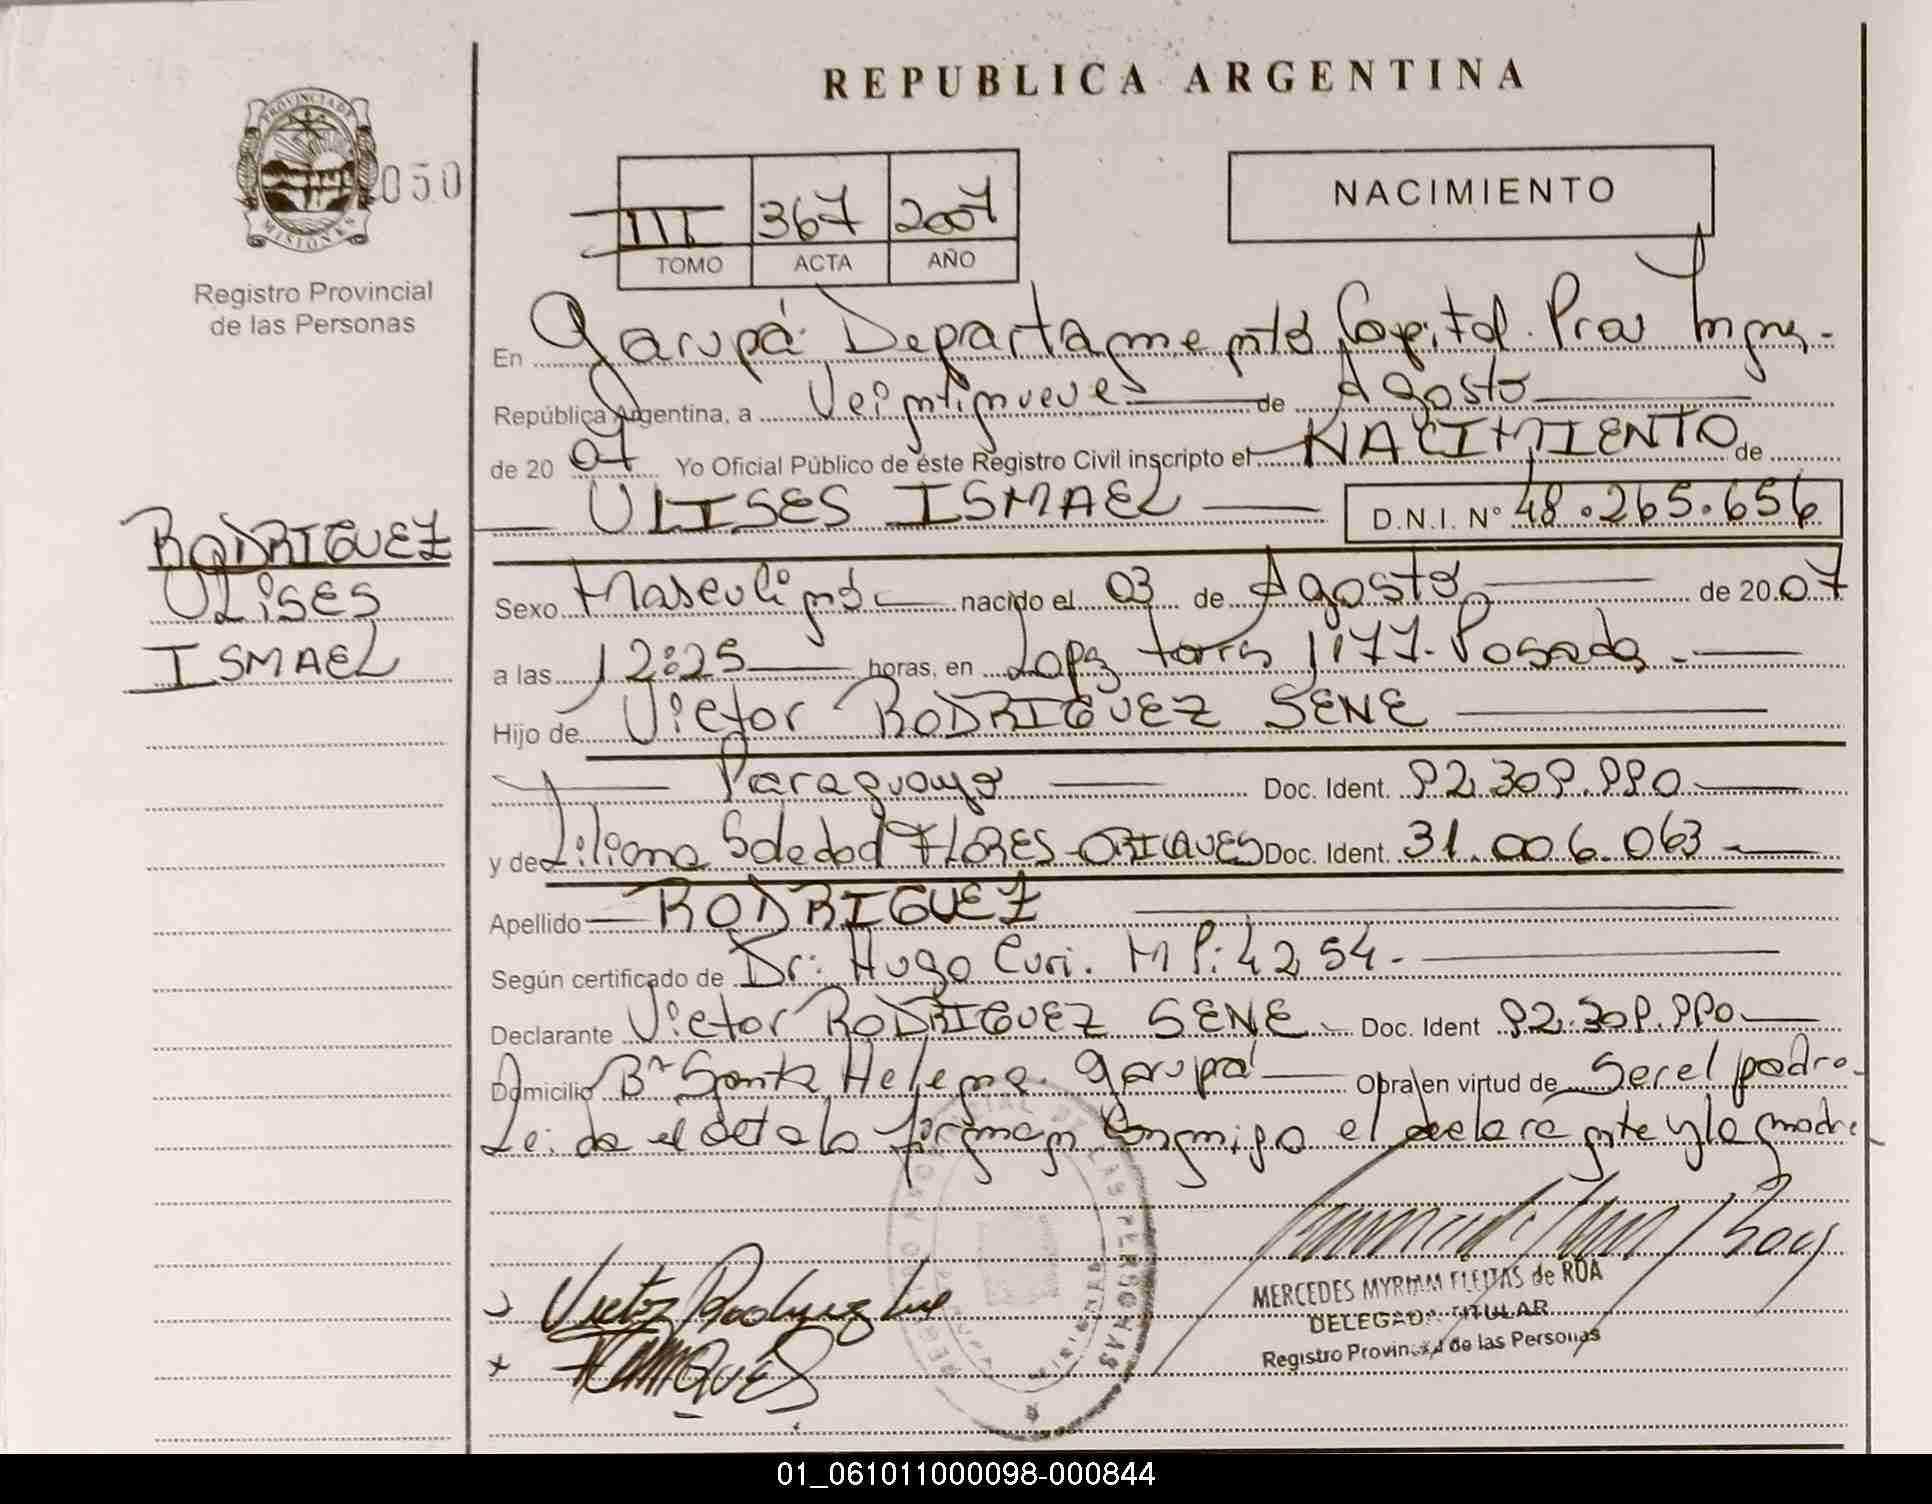 REPUBLICA ARGENTINA
PROVINCIA DE MISIONES
050
Registro Provincial
de las Personas
III 367 2007
TOMO ACTA AÑO
NACIMIENTO
En Garupá Departamento Capital. Pcia Mnes.-
República Argentina, a Veintinueve de Agosto
de 2007 Yo Oficial Público de éste Registro Civil inscripto el NACIMIENTO de
ULISES ISMAEL D.N.I. N° 48.265.656
RODRIGUEZ
ULISES
ISMAEL
Sexo Masculino nacido el 03 de Agosto de 2007
a las 12:25 horas, en Lopez torres 1177. Posadas.-
Hijo de Victor RODRIGUEZ SENE
Paraguayo Doc. Ident. 92.309.990
y de Liliana Soledad FLORES ORIQUES Doc. Ident. 31.006.063
Apellido RODRIGUEZ
Según certificado de Dr: Hugo Curi. M P: 4254.-
Declarante Victor RODRIGUEZ SENE Doc. Ident 92.309.990
Domicilio B° Santa Helena. Garupá Obra en virtud de Ser el padre.
Leida el acta la firman conmigo el declarante y la madre
REGISTRO PROVINCIAL DE LAS PERSONAS
MISIONES
Victor Rodriguez
MERCEDES MYRIAM FLEITAS de ROA
DELEGADA TITULAR
Registro Provincial de las Personas
01_061011000098-000844